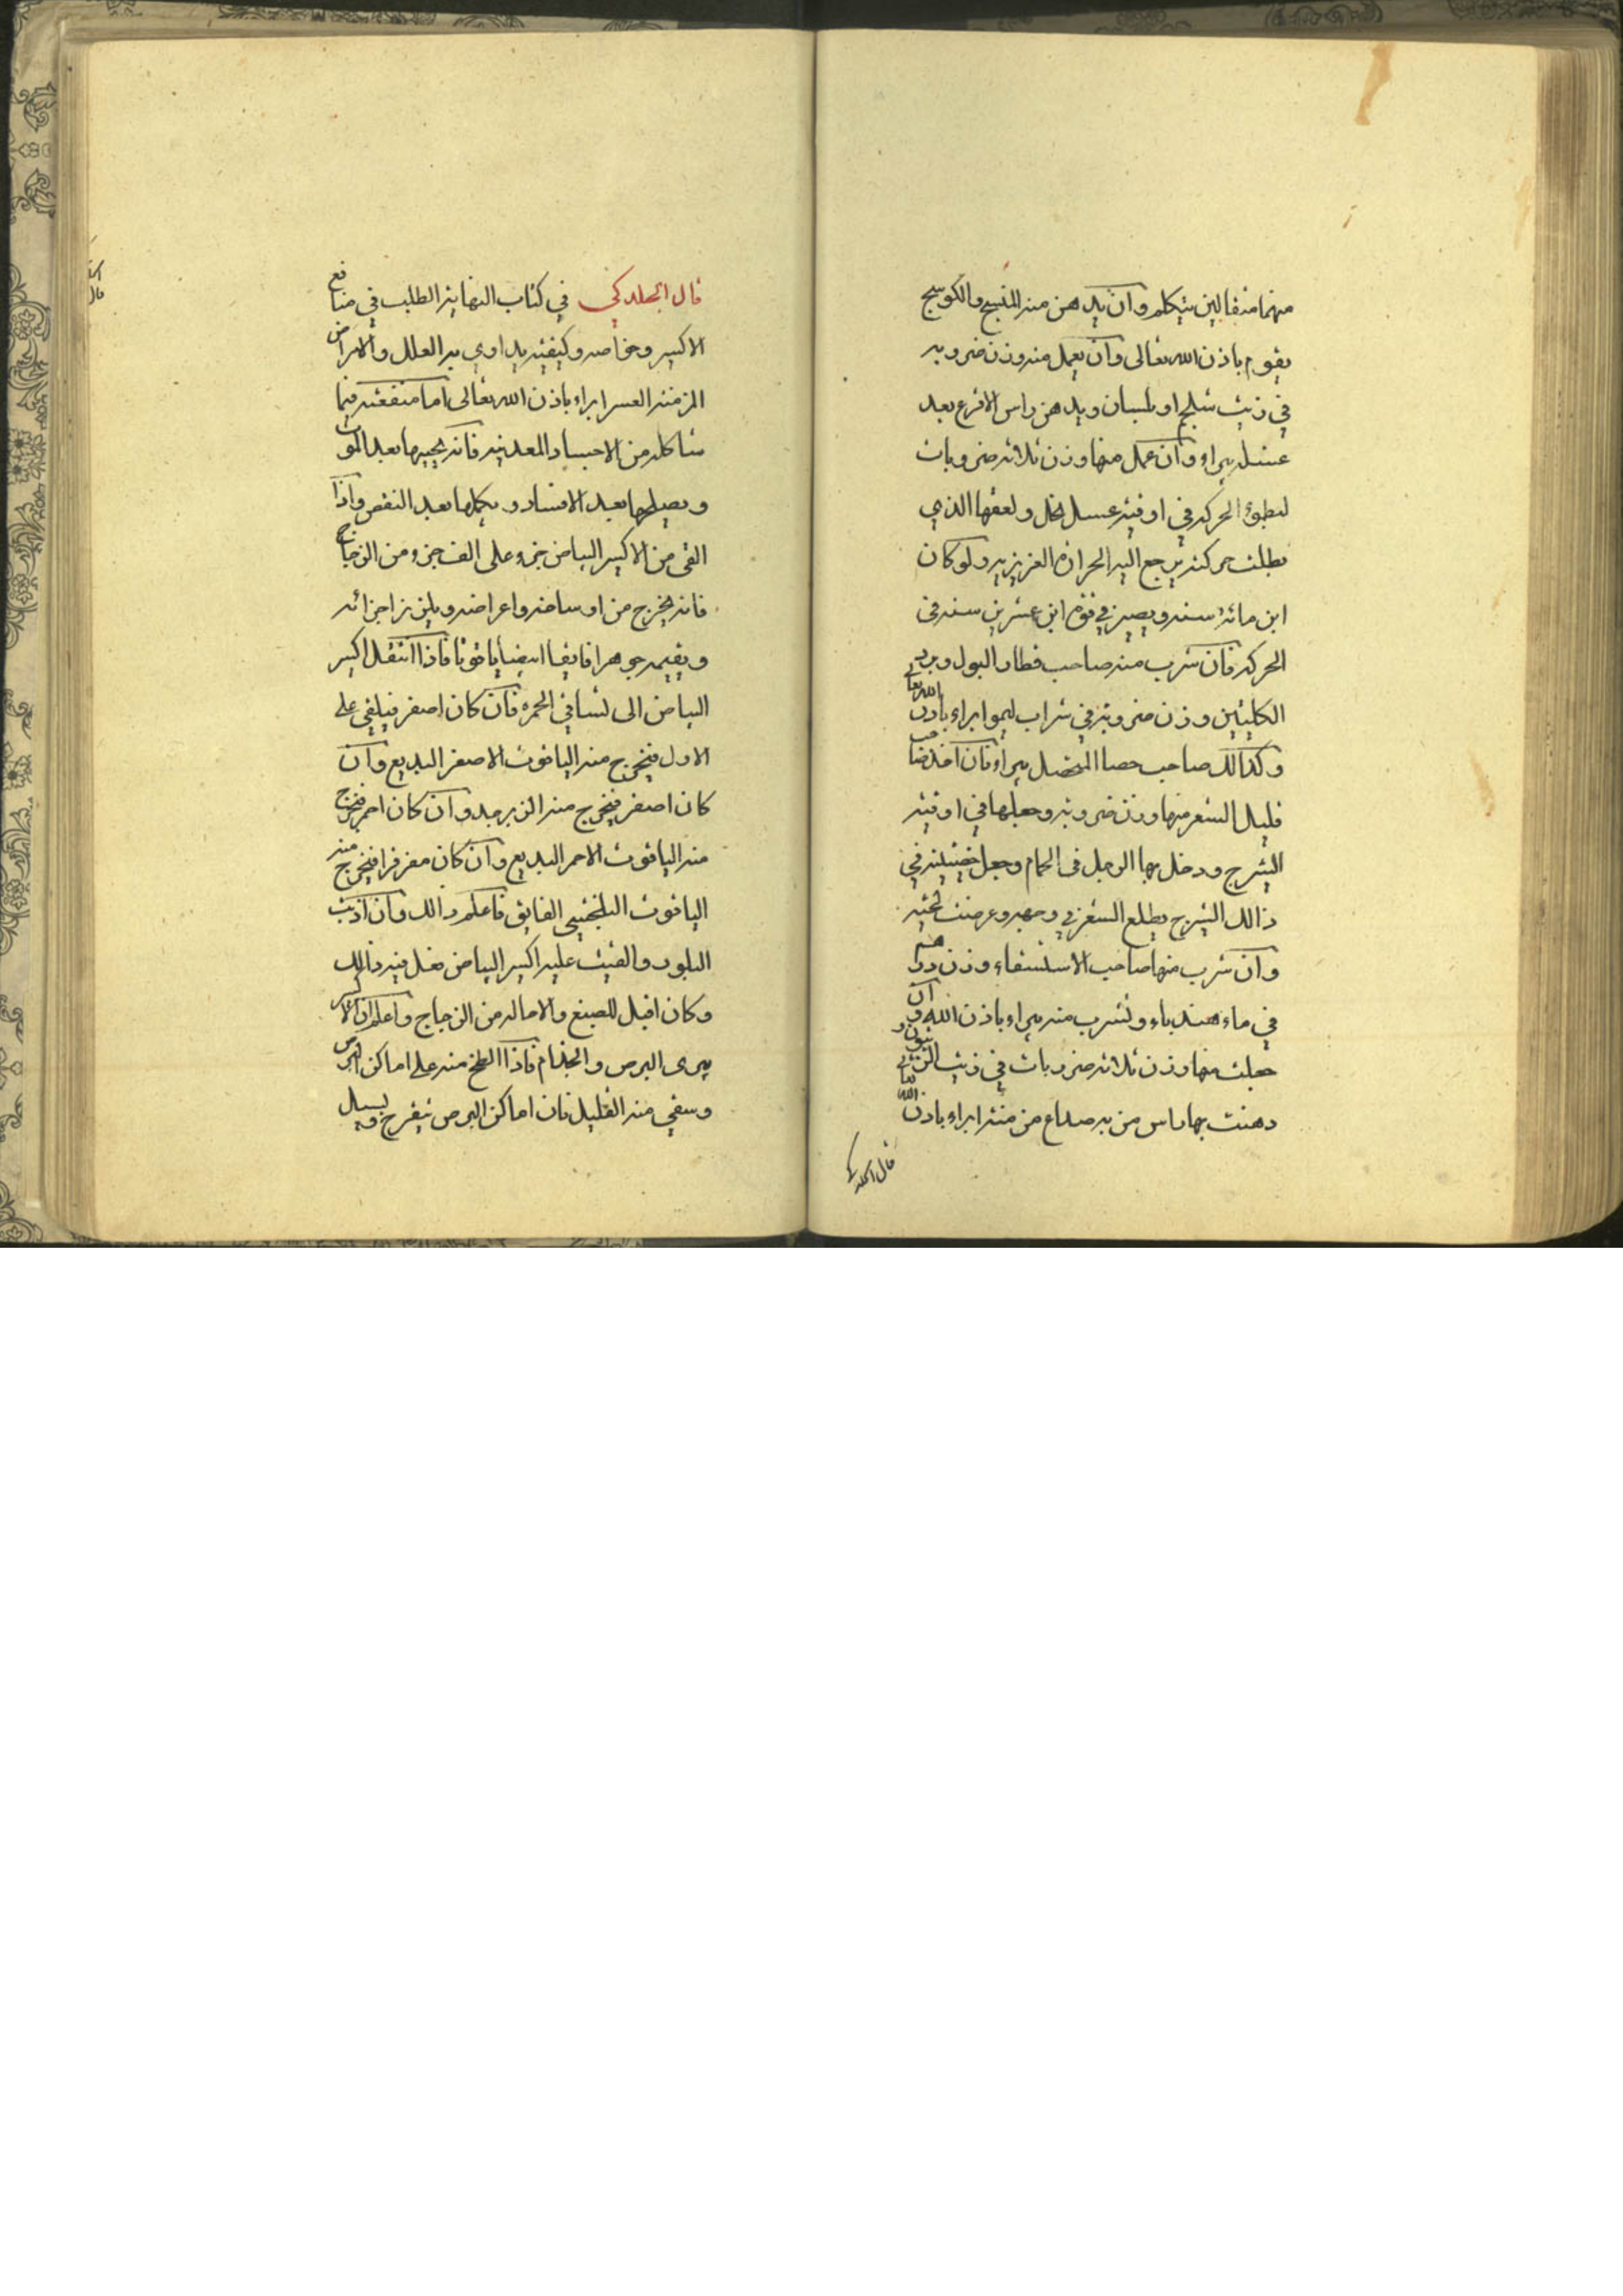 منهما مثقالين يتكلم وان يدهن منه المنسج والكوسج
يقوم باذن الله تعالى وان يعمل منه وزن خروبه
في زيت شلجم او بلسان ويدهن راس الاقرع بعد
غسله يبراء وان عمل منها وزن ثلاثه خروبات
لبطوء الحركه في اوقيه عسل نحل ولعقها الذي
بطلت حركته يرجع اليه الحرارة الغزيزيه ولو كان
ابن مائة سنه ويصير في قوة ابن عشرين سنه في
الحركه فان شرب منه صاحب قطار البول وبرد
الكليتين وزن خروبه في شراب ليمو ابراء باذن الله تعالى
وكذالك صاحب حصا المفصل يبراء فان اخذ صاحب
قليل الشعر منها وزن خروبه وجعلها في اوقيه
الشيرج ودخل بها الرجل في الحمام وجعل خصيته في
ذالك الشيرج يطلع الشعر في وجهه وعرضت لحيته
وان شرب منها صاحب الاستسقاء وزن درهم
في ماء هندباء وتشرب منه يبراء باذن الله وان
جعلت منها وزن ثلاثه خروبات في زيت الزيتون و
دهنت بها راس من به صداع مزمنه ابراء باذن الله تعالى
قال الجلدكي
قال الجلدكي في كتاب النهايه الطلب في منافع
الاكسير وخواصه وكيفيته يداوي به العلل والامراض
المزمنه العسر ابراء باذن الله تعالى اما منفعته فيما
شاكله من الاجساد المعدنيه فانه يحييها بعد الموت
ويصلحها بعد الافساد ويكملها بعد النقص واذا
القى من الاكسير البياض جزء على الف جزء من الزجاج
فانه يخرج من اوساخه واعراضه ويلين زاجزائه
ويقيمه جوهرا فايقا ابيضا ياقوتا فاذا انتقل اكسير
البياض الى لسافي الحمره فان كان اصفر فيلقى على
الاول فيخرج منه الياقوت الاصفر البديع وان
كان اصفر فيخرج منه الزبرجد وان كان احمر فيخرج
منه الياقوت الاحمر البديع وان كان مفرفرا فيخرج منه
الياقوت البلخشي الفايق فاعلم ذالك وان اذيت
البلور والقيت عليه اكسير البياض فعل فيه ذالك
وكان اقبل للصبغ والاماله من الزجاج واعلم ان الاكسير
يبرى البرص والجذام فاذا الطخ منه على اماكن البرص
وسقي منه القليل فان اماكن البرص تيقرح ويسيل